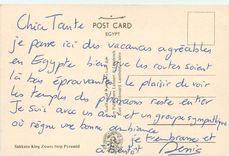 POST CARD
EGYPT
Chère Tante
je passe ici des vacances agréables
en Egypte bien que les routes soient
là bas éprouvantes le plaisir de voir
les temples du pharaons reste entier
Je suis avec un ami et un groupe sympathique
où règne une bonne ambiance
je t'embrasse et
à bientôt Denis
Sakkara King Zosers Step Pyramid